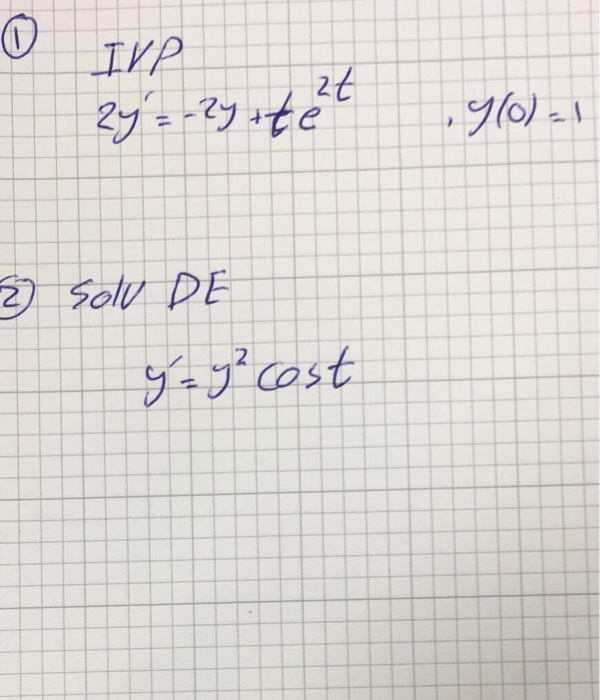 ① IVP
2y′ = -2y + te^{2t} , y(0) = 1
② Solv DE
y′ = y² cost